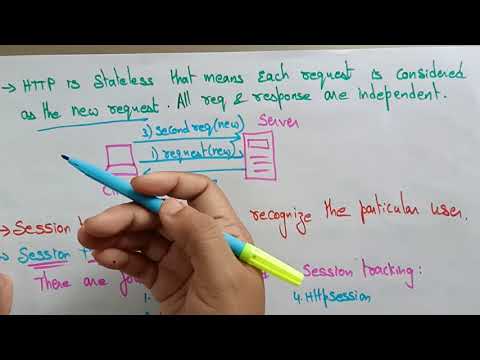 → HTTP is Stateless that means Each request is considered
as the new request. All req & response are independent.
3) Second req(new)
Server
1) request(new)
→ Session
recognize the particular user.
Session
Session tracking:
There are
1.
4. HttpSession